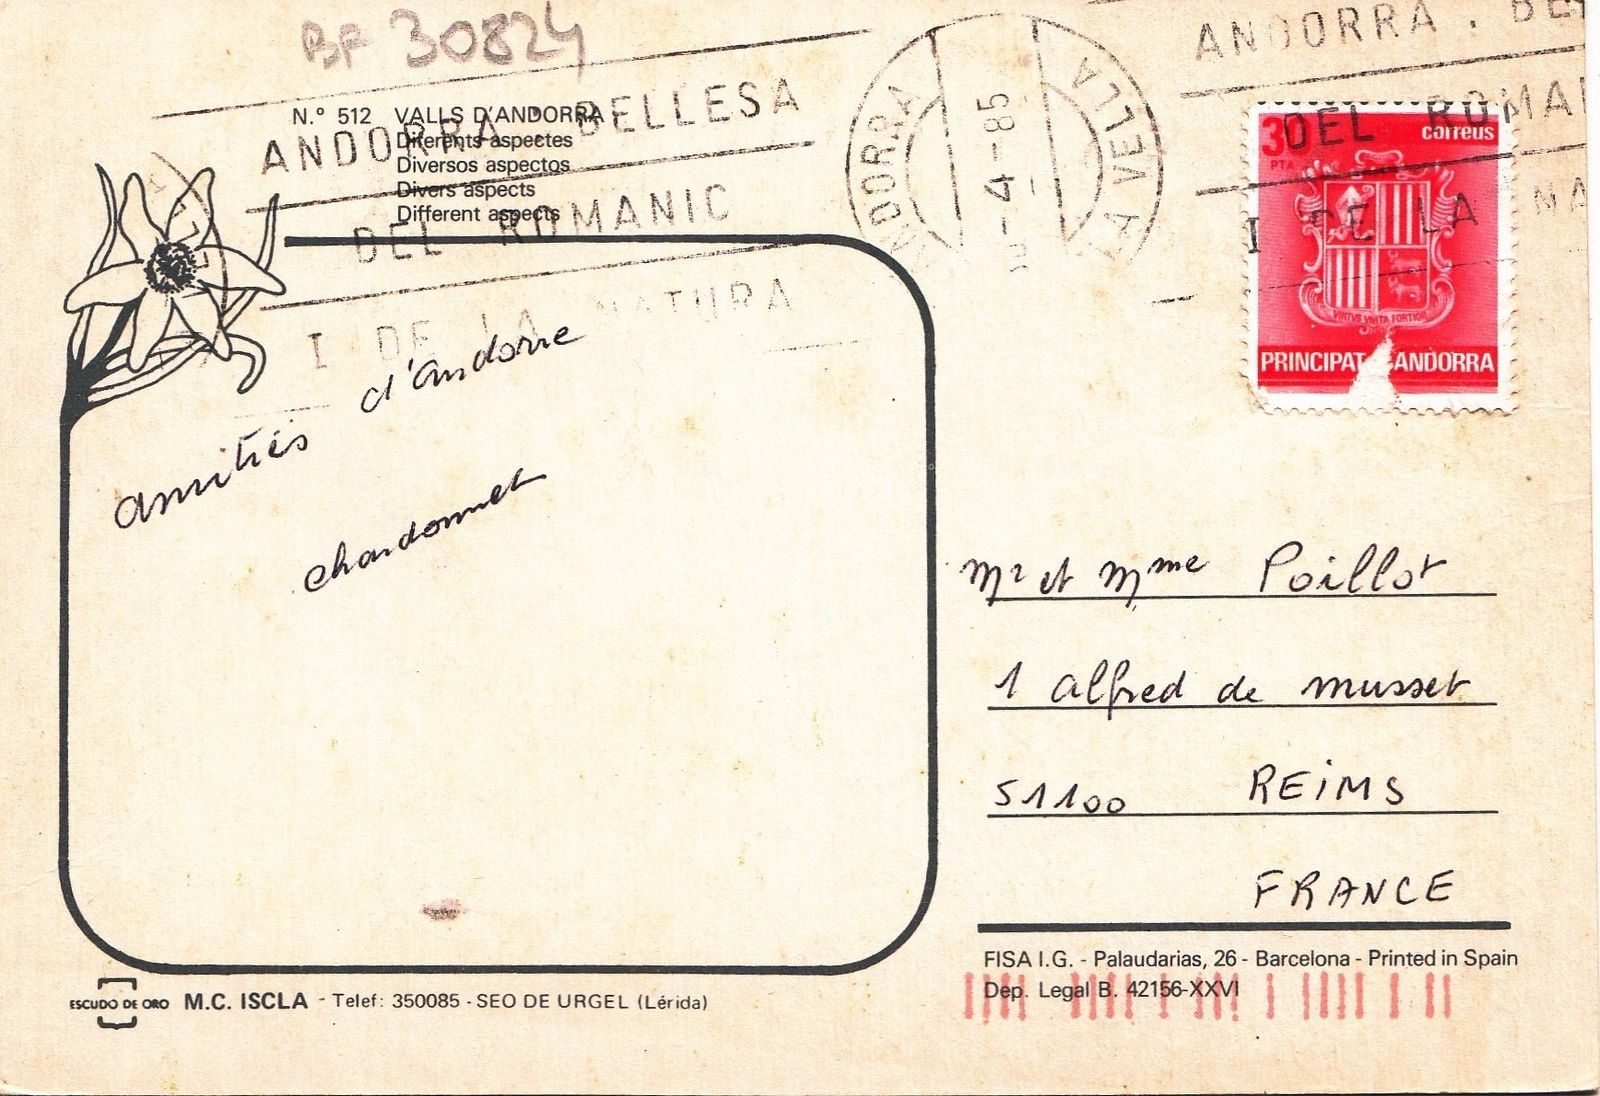 BF 30824
N.º 512 VALLS D'ANDORRA
Diferents aspectes
Diversos aspectos
Divers aspects
Different aspects
ANDORRA. BELLESA
DEL ROMANIC
I DE LA NATURA
ANDORRA LA VELLA
-4-85
ANDORRA. BE
DEL ROMA
I DE LA NA
PTA
correus
VIRTVS VNITA FORTIOR
PRINCIPAT ANDORRA
amitiés d'andorre
chardonnet
Mr et Mme Poillot
1 alfred de musset
51100 REIMS
FRANCE
FISA I.G. - Palaudarias, 26 - Barcelona - Printed in Spain
Dep. Legal B. 42156-XXVI
ESCUDO DE ORO M.C. ISCLA - Telef: 350085 - SEO DE URGEL (Lérida)